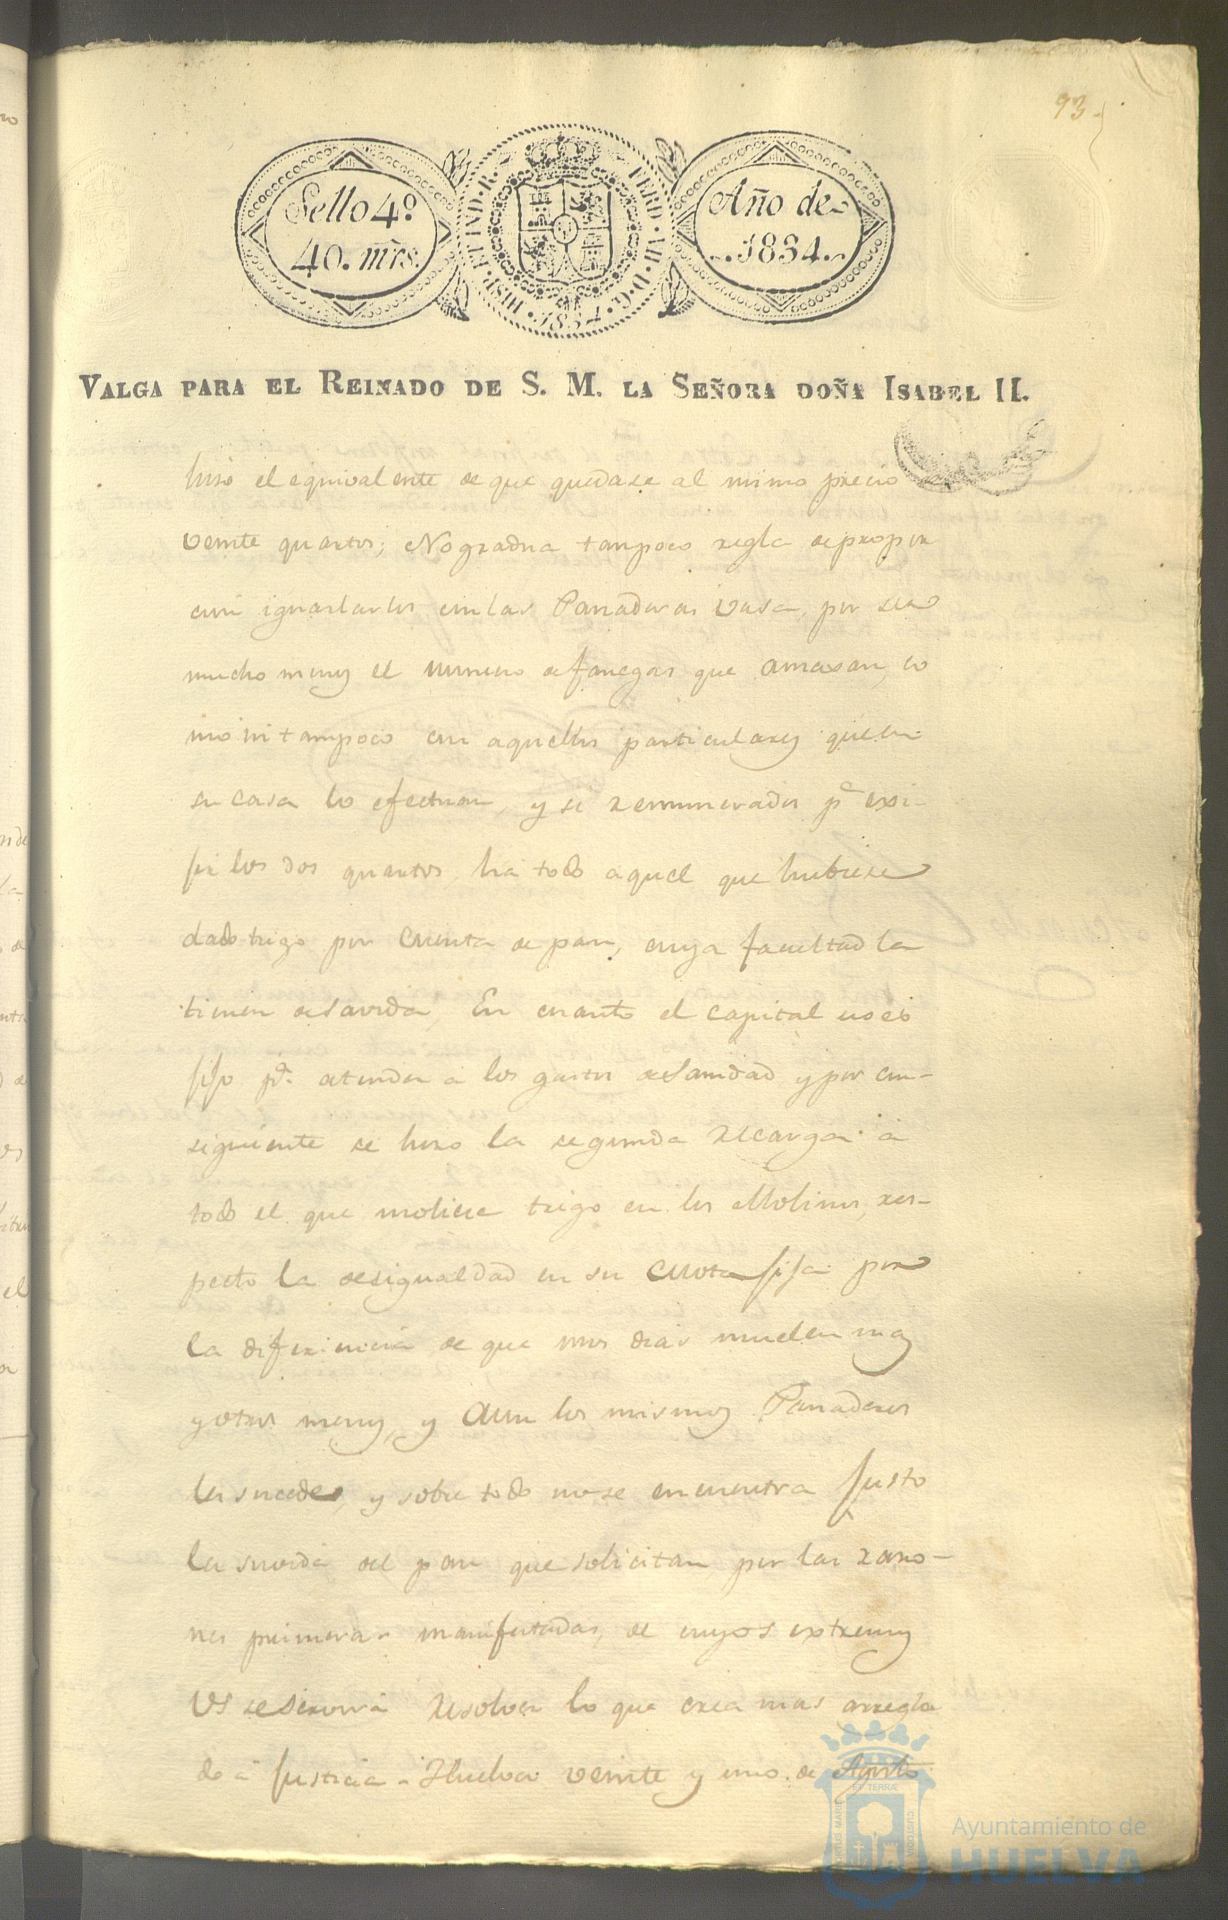 93.
Sello 4º
40. mrs.
HISP. ET IND. R. FERD. VII. D. G. 1834
Año de
1834.
VALGA PARA EL REINADO DE S. M. LA SEÑORA DOÑA ISABEL II.
hiso el equivalente de que quedase al mimo precio
veinte quartos; No gradua tampoco regla de propor
cion igualarlos con las Panaderas Vasa, por ser
mucho menos el numero de fanegas que amasan, co
mo ni tampoco con aquellos particulares que en
su casa lo efectuan, y si remunerados pª exi-
jir los dos quartos ha todo aquel que hubiese
dado trigo por cuenta de pan, cuya facultad la
tienen de savida, En cuanto el capital no es
fijo pª atender a los gastos de Sanidad y por con-
siguiente se hiso la segunda recarga a
todo el que moliese trigo en los Molinos, res-
pecto la desigualdad en su cuota fija por
la diferiencia de que unos dias muelen mas
y otros menos, y aun los mismos Panaderos
les sucede, y sobre todo no se encuentra justo
la suvida del pan que solicitan por las razo-
nes primeras manifestadas, de cuyos extremos
VS se servirá resolver lo que crea mas arregla
do á justicia. Huelva veinte y uno de Agosto
Ayuntamiento de
HUELVA